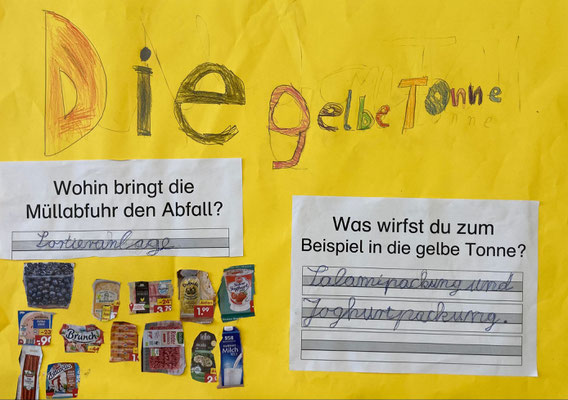 Die gelbe Tonne
Wohin bringt die
Müllabfuhr den Abfall?
Sortieranlage
Was wirfst du zum
Beispiel in die gelbe Tonne?
Salamipackung und
Joghurtpackung.
Brunch
1.99
Milch